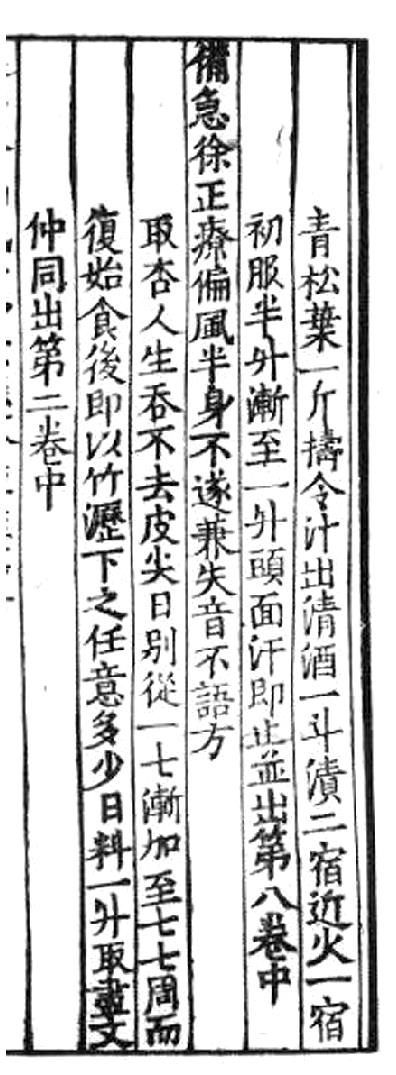 青松葉一斤擣令汁出清酒一斗漬二宿近火一宿
初服半升漸至一升頭面汗即止並出第八卷中
備急徐正療偏風半身不遂兼失音不語方
取杏人生吞不去皮尖日別從一七漸加至七七周而
復始食後即以竹瀝下之任意多少日料一升取盡文
仲同出第二卷中